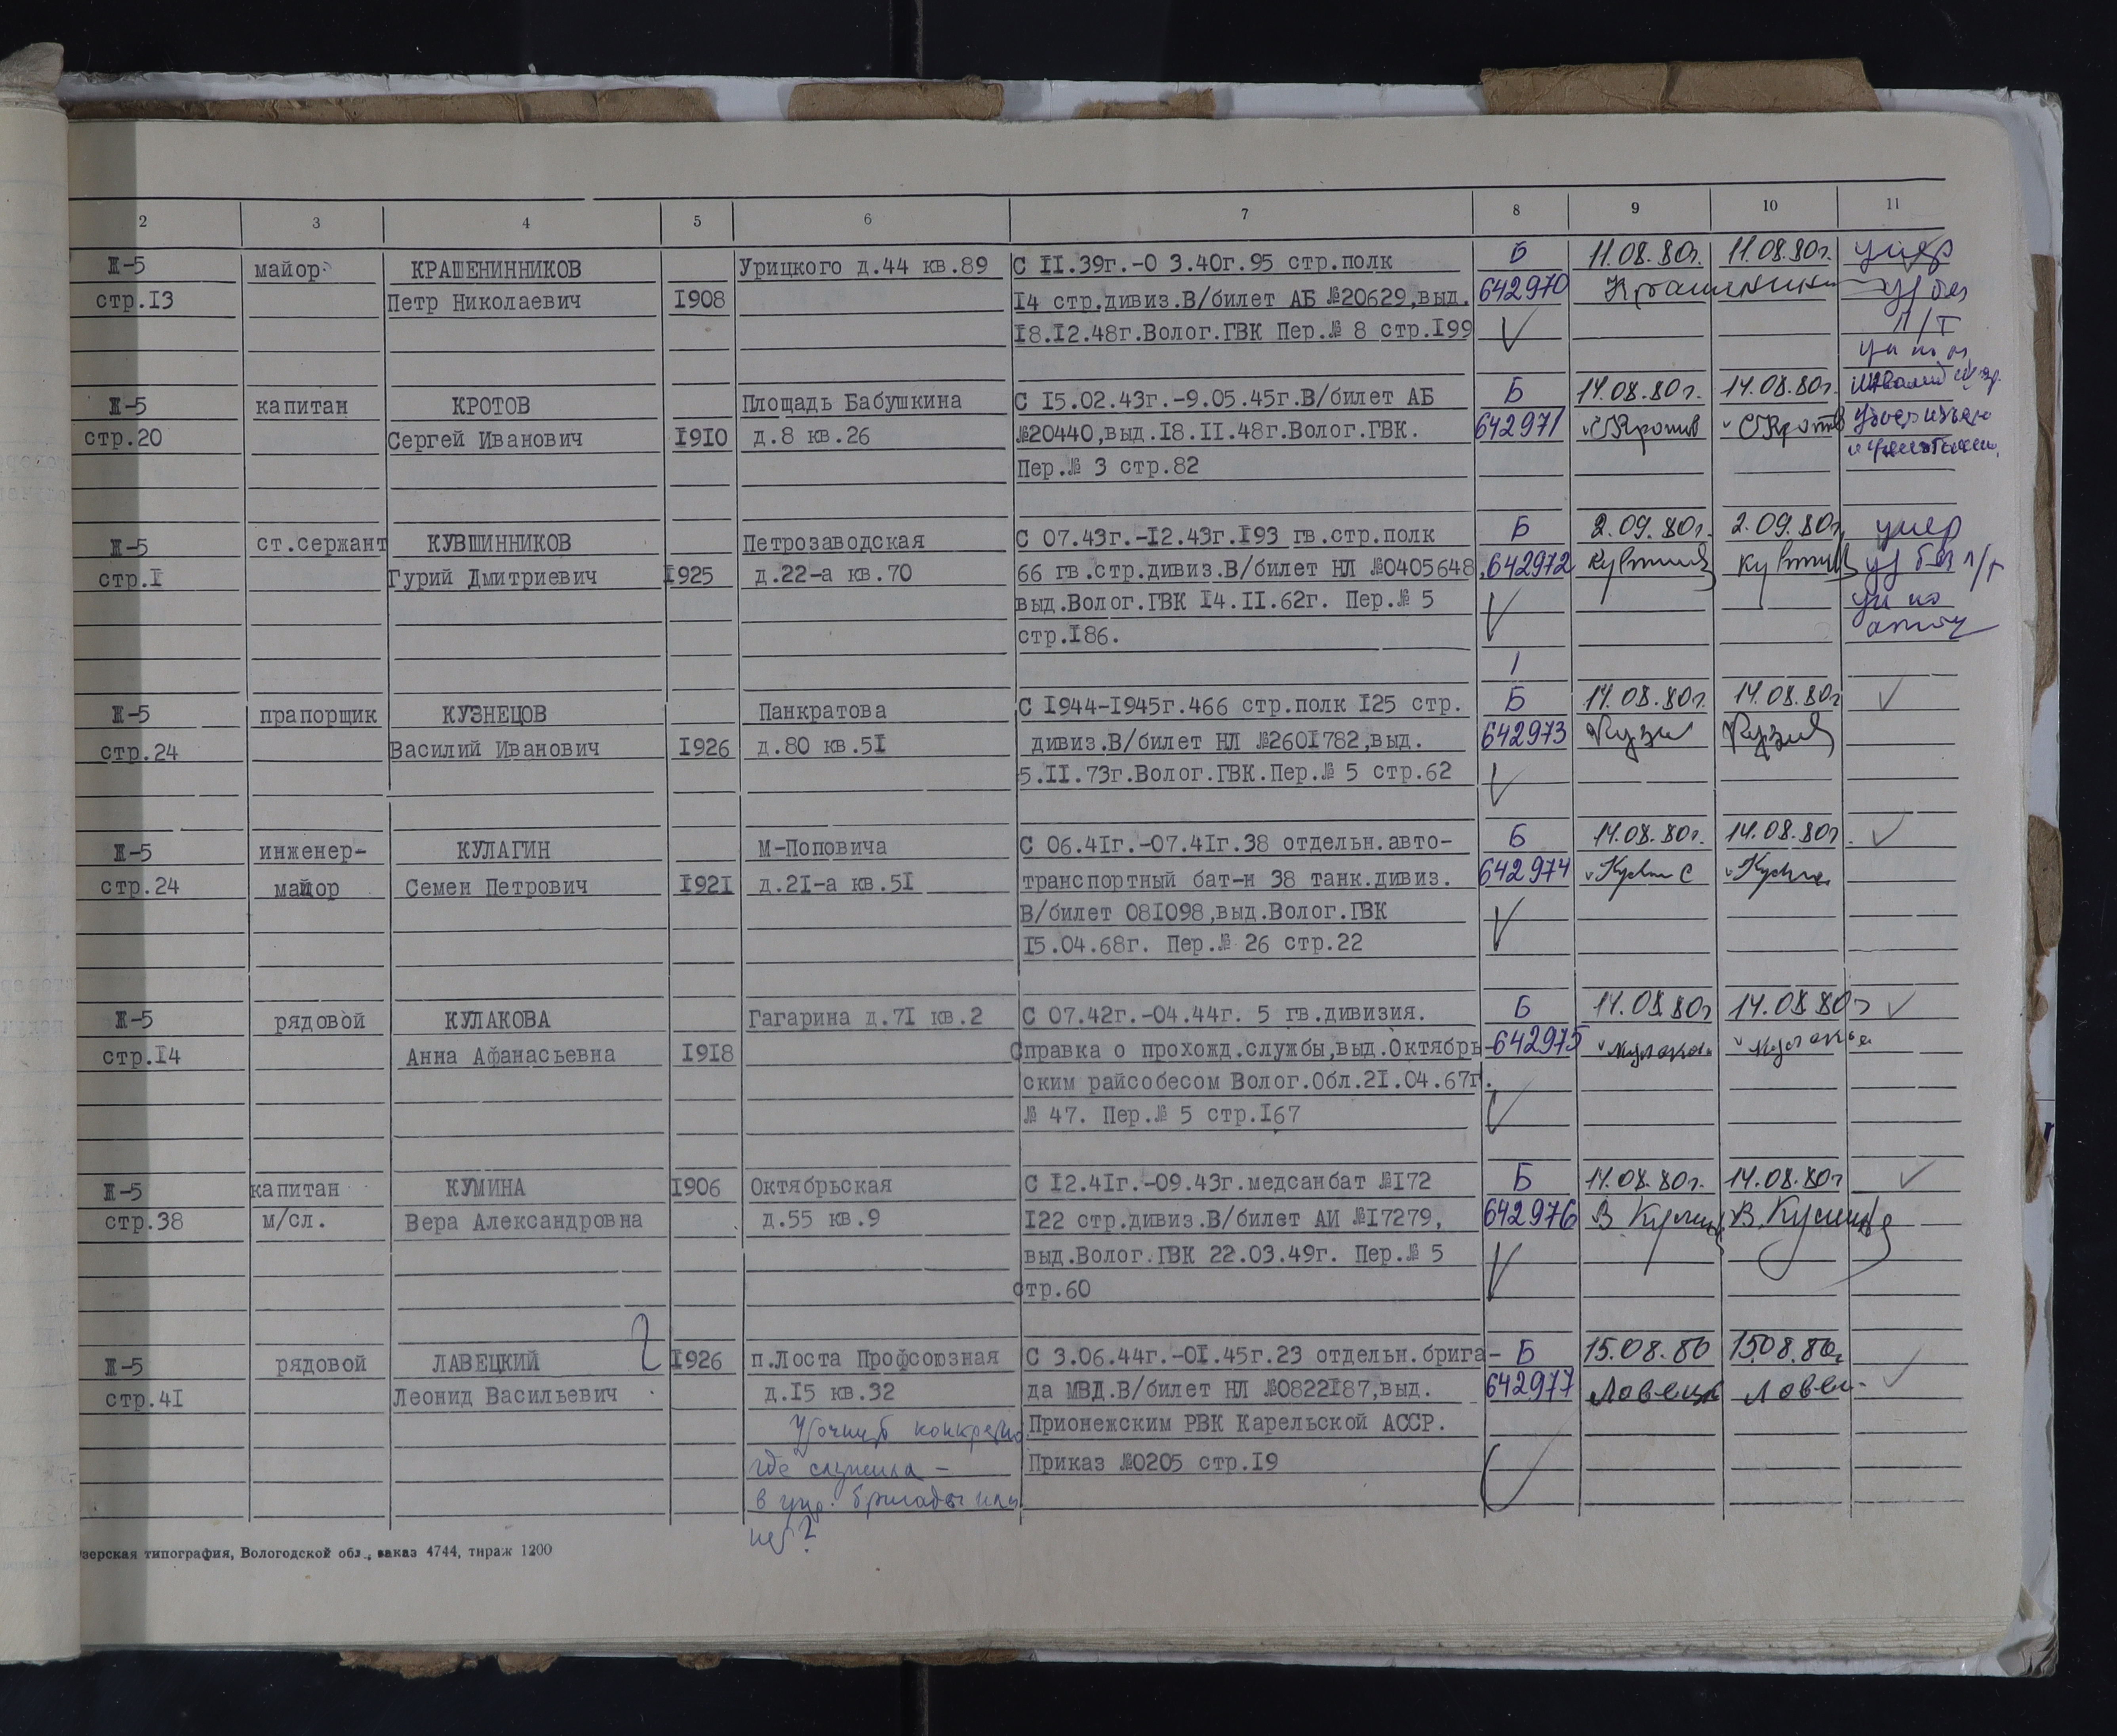 2 3 4 5 6 7 8 9 10 11
Ж-5 майор КРАШЕНИННИКОВ Урицкого д.44 кв.89 С II.39г.-0 3.40г.95 стр.полк Б 11.08.80г. 11.08.80г. умер
стр.I3 Петр Николаевич I908 I4 стр.дивиз.В/билет АБ №20629,выд. 642970
I8.I2.48г.Волог.ГВК Пер.№ 8 стр.I99
Ж-5 капитан КРОТОВ Площадь Бабушкина С I5.02.43г.-9.05.45г.В/билет АБ Б 14.08.80г. 14.08.80г.
стр.20 Сергей Иванович I9I0 д.8 кв.26 №20440,выд.I8.II.48г.Волог.ГВК. 642971 СКротов СКротов
Пер.№ 3 стр.82
Ж-5 ст.сержант КУВШИННИКОВ Петрозаводская С 07.43г.-I2.43г.I93 гв.стр.полк Б 2.09.80г. 2.09.80г. умер
стр.I Гурий Дмитриевич I925 д.22-а кв.70 66 гв.стр.дивиз.В/билет НЛ №0405648, 642972 уд без п/т
выд.Волог.ГВК I4.II.62г. Пер.№ 5
стр.I86.
Ж-5 прапорщик КУЗНЕЦОВ Панкратова С I944-I945г.466 стр.полк I25 стр. Б 14.08.80г. 14.08.80г
стр.24 Василий Иванович I926 д.80 кв.5I дивиз.В/билет НЛ №260I782,выд. 642973
5.II.73г.Волог.ГВК.Пер.№ 5 стр.62
Ж-5 инженер- КУЛАГИН М-Поповича С 06.4Iг.-07.4Iг.38 отдельн.авто- Б 14.08.80г. 14.08.80г.
стр.24 майор Семен Петрович I92I д.2I-а кв.5I транспортный бат-н 38 танк.дивиз. 642974
В/билет 08I098,выд.Волог.ГВК
I5.04.68г. Пер.№ 26 стр.22
Ж-5 рядовой КУЛАКОВА Гагарина д.7I кв.2 С 07.42г.-04.44г. 5 гв.дивизия. Б 14.08.80г 14.08.80г
стр.I4 Анна Афанасьевна I9I8 Справка о прохожд.службы,выд.Октябрь- 642975
ским райсобесом Волог.Обл.2I.04.67г.
№ 47. Пер.№ 5 стр.I67
Ж-5 капитан КУМИНА I906 Октябрьская С I2.4Iг.-09.43г.медсанбат №I72 Б 14.08.80г. 14.08.80г
стр.38 м/сл. Вера Александровна д.55 кв.9 I22 стр.дивиз.В/билет АИ №I7279, 642976 В. Кумина
выд.Волог.ГВК 22.03.49г. Пер.№ 5
стр.60
Ж-5 рядовой ЛАВЕЦКИЙ I926 п.Лоста Профсоюзная С 3.06.44г.-0I.45г.23 отдельн.брига- Б 15.08.80 15.08.80г
стр.4I Леонид Васильевич д.I5 кв.32 да МВД.В/билет НЛ №0822I87,выд. 642977 Лавецк Лавец
Уточнить конкретно Прионежским РВК Карельской АССР.
где служила – Приказ №0205 стр.I9
в упр. бригады или
нет?
зерская типография, Вологодской обл., заказ 4744, тираж 1200